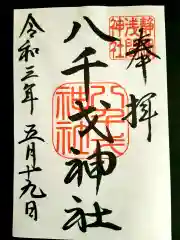 奉拝
静岡
浅間
神社
八千戈神社
令和三年五月十九日